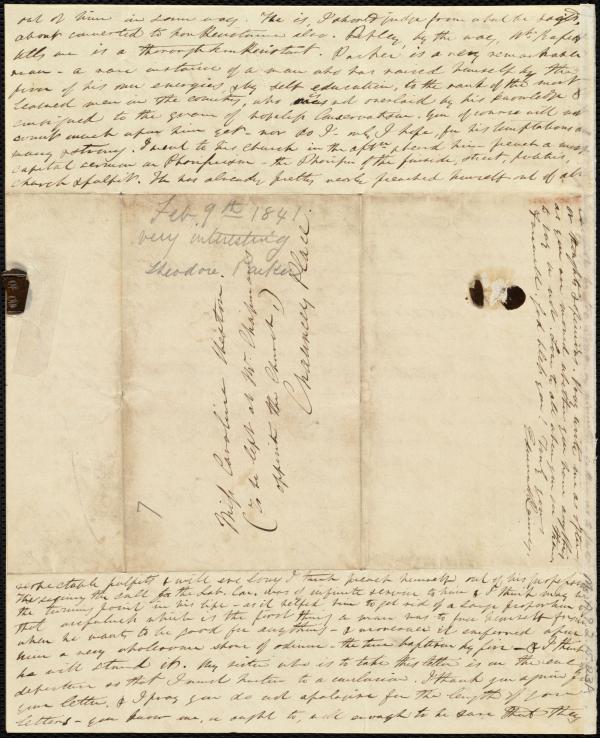 out of him in some way. He is, I should judge from what he says,
about converted to non Resistance also. Ripley, by the way, Wm
tells me is a thorough non Resistant. Parker is a very remarkable
man - a rare instance of a man who has raised himself by the
power of his own energies, & by self education, to the rank of the most
learned men in the country, who is not overlaid by his knowledge &
consigned to the grave of hopeless Conservatism. You of course will not
count much upon him yet - nor do I - my I hope, for his temptations are
many & strong. I went to his church in the aftn. & heard him preach a most
capital sermon on Pharisaism - the Pharisee of the fireside, street, politics,
church & pulpit. He has already pretty nearly preached himself out of all
Feb. 9th 1841
very interesting
Theodore Parker
Miss Caroline Weston.
(to be left at Mr. Chapman's
opposite the Church,)
Chauncey Place.
7
Pray write me as often
as you can and
to boy us all. Love to all
Farewell, God bless you! Yours
Edmund Quincy.
respectable pulpits & will ere long I think preach himself out of his profession
The signing the call for the Sab. Con. was of infinite service to him & I think may
the turning point in his life - as it helped him to get rid of a large proportion
that usefulness which is the first thing a man has to free himself from
when he wants to be good for anything - & moreover it conferred upon
him a very wholesome share of odium - the true baptism by fire - & I think
he will stand it. My sister who is to take this letter is on the eve
departure so that I must hasten to a conclusion. I thank you again for
your letter, & I pray you do not apologise for the length of your
letters - you know me, or ought to, well enough to be sure that they